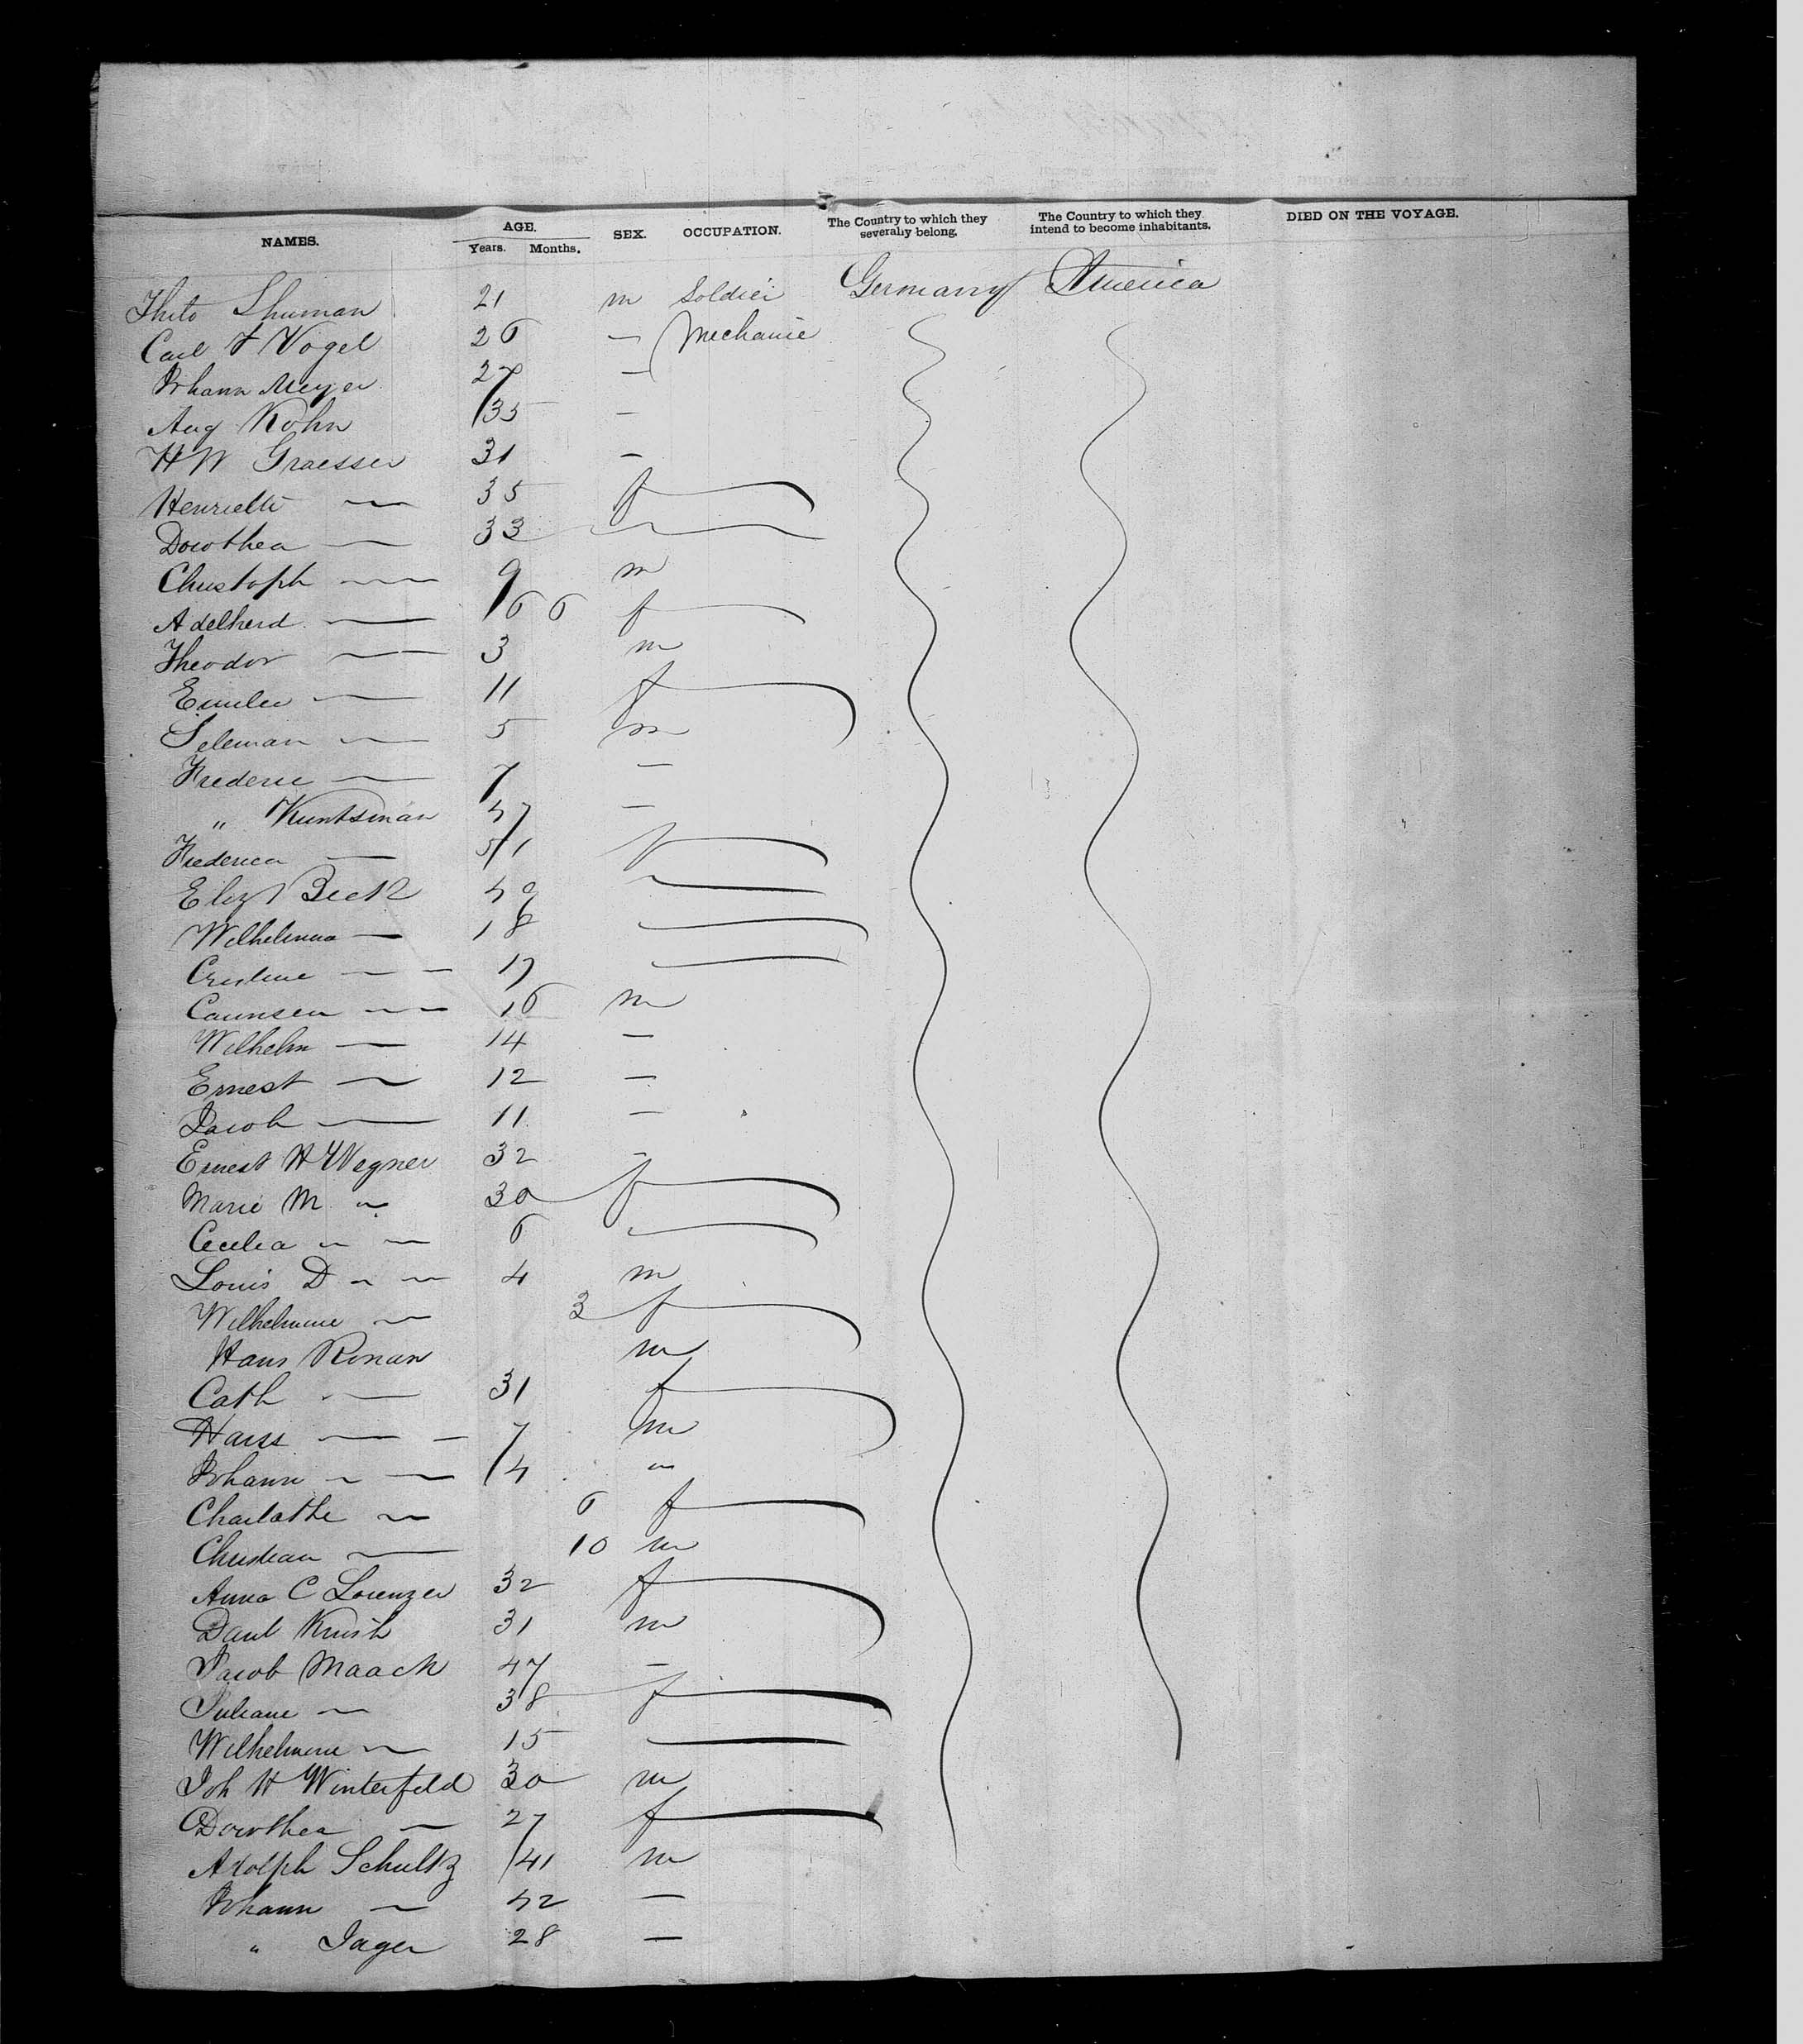 NAMES. AGE. Years. Months. SEX. OCCUPATION. The Country to which they severally belong. The Country to which they intend to become inhabitants. DIED ON THE VOYAGE.
Thilo Shuman 21 m Soldier Germany America
Carl F Vogel 26 — Mechanic
Johann Meyer 27 —
Aug Kohn 35 —
H W Graesser 31 —
Henriette — 35 f
Dorothea — 33
Christoph — 9 m
Adelheid — 6 6 f
Theodor — 3 m
Emilie — 11 f
Seleman — 5 m
Frederic — 7 —
" Kuntsman 47 —
Frederica — 51 f
Elizt Beck 49
Wilhelmina — 18
Cristine — 17
16 m
Wilhelm — 14 —
Ernest — 12 —
Jacob — 11 —
Ernest H Wegner 32 —
Marie M — 30 f
Cecilia — 6
Louis D — 4 m
Wilhelmine — 3 f
Hans Ronan m
Cath — 31 f
Hans — 7 m
Johann — 4 "
Charlotte — 6 f
Christian — 10 m
Anna C Lorenzer 32 f
Danl 31 m
Jacob Maack 47 —
Juliane — 38 f
Wilhelmine — 15
Joh H Winterfeld 30 m
Dorothea — 27 f
Adolph Schultz 41 m
Johann — 42 —
" Jager 28 —